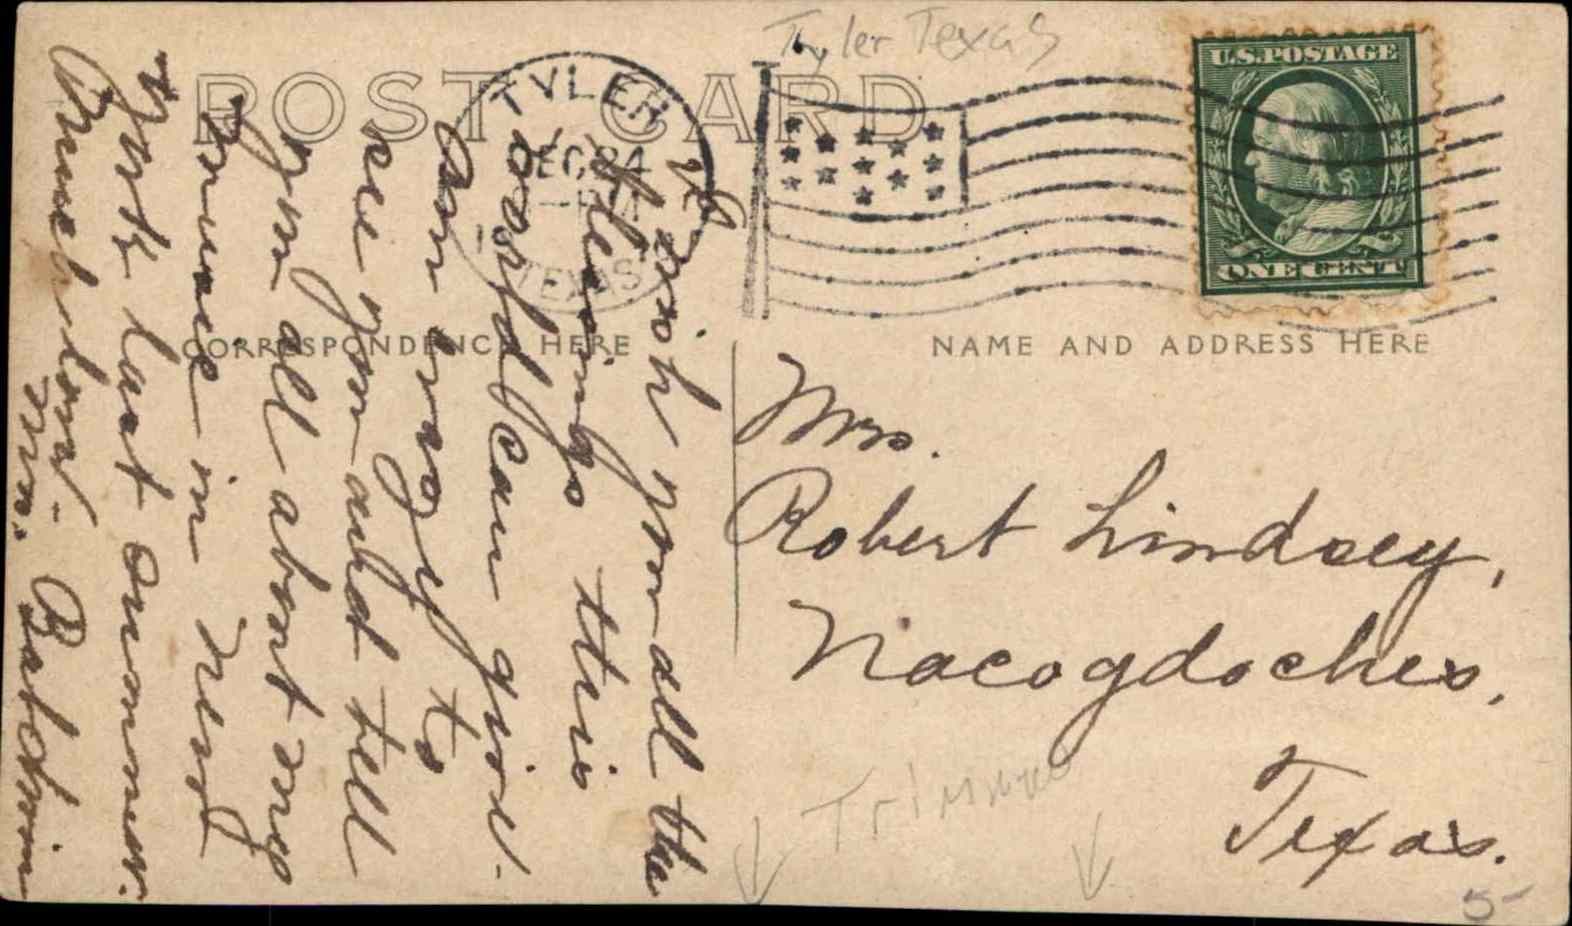 Tyler Texas
POST CARD
TYLER
DEC 24
TEXAS
U.S. POSTAGE
ONE CENT
CORRESPONDENCE HERE
NAME AND ADDRESS HERE
I wish you all the
blessings this
world can give.
Am crazy to
see you and tell
you all about my
course in New
York last summer.
Much love.
Mrs. Batchwin
Mrs.
Robert Lindsey,
Nacogdoches,
Texas.
5-